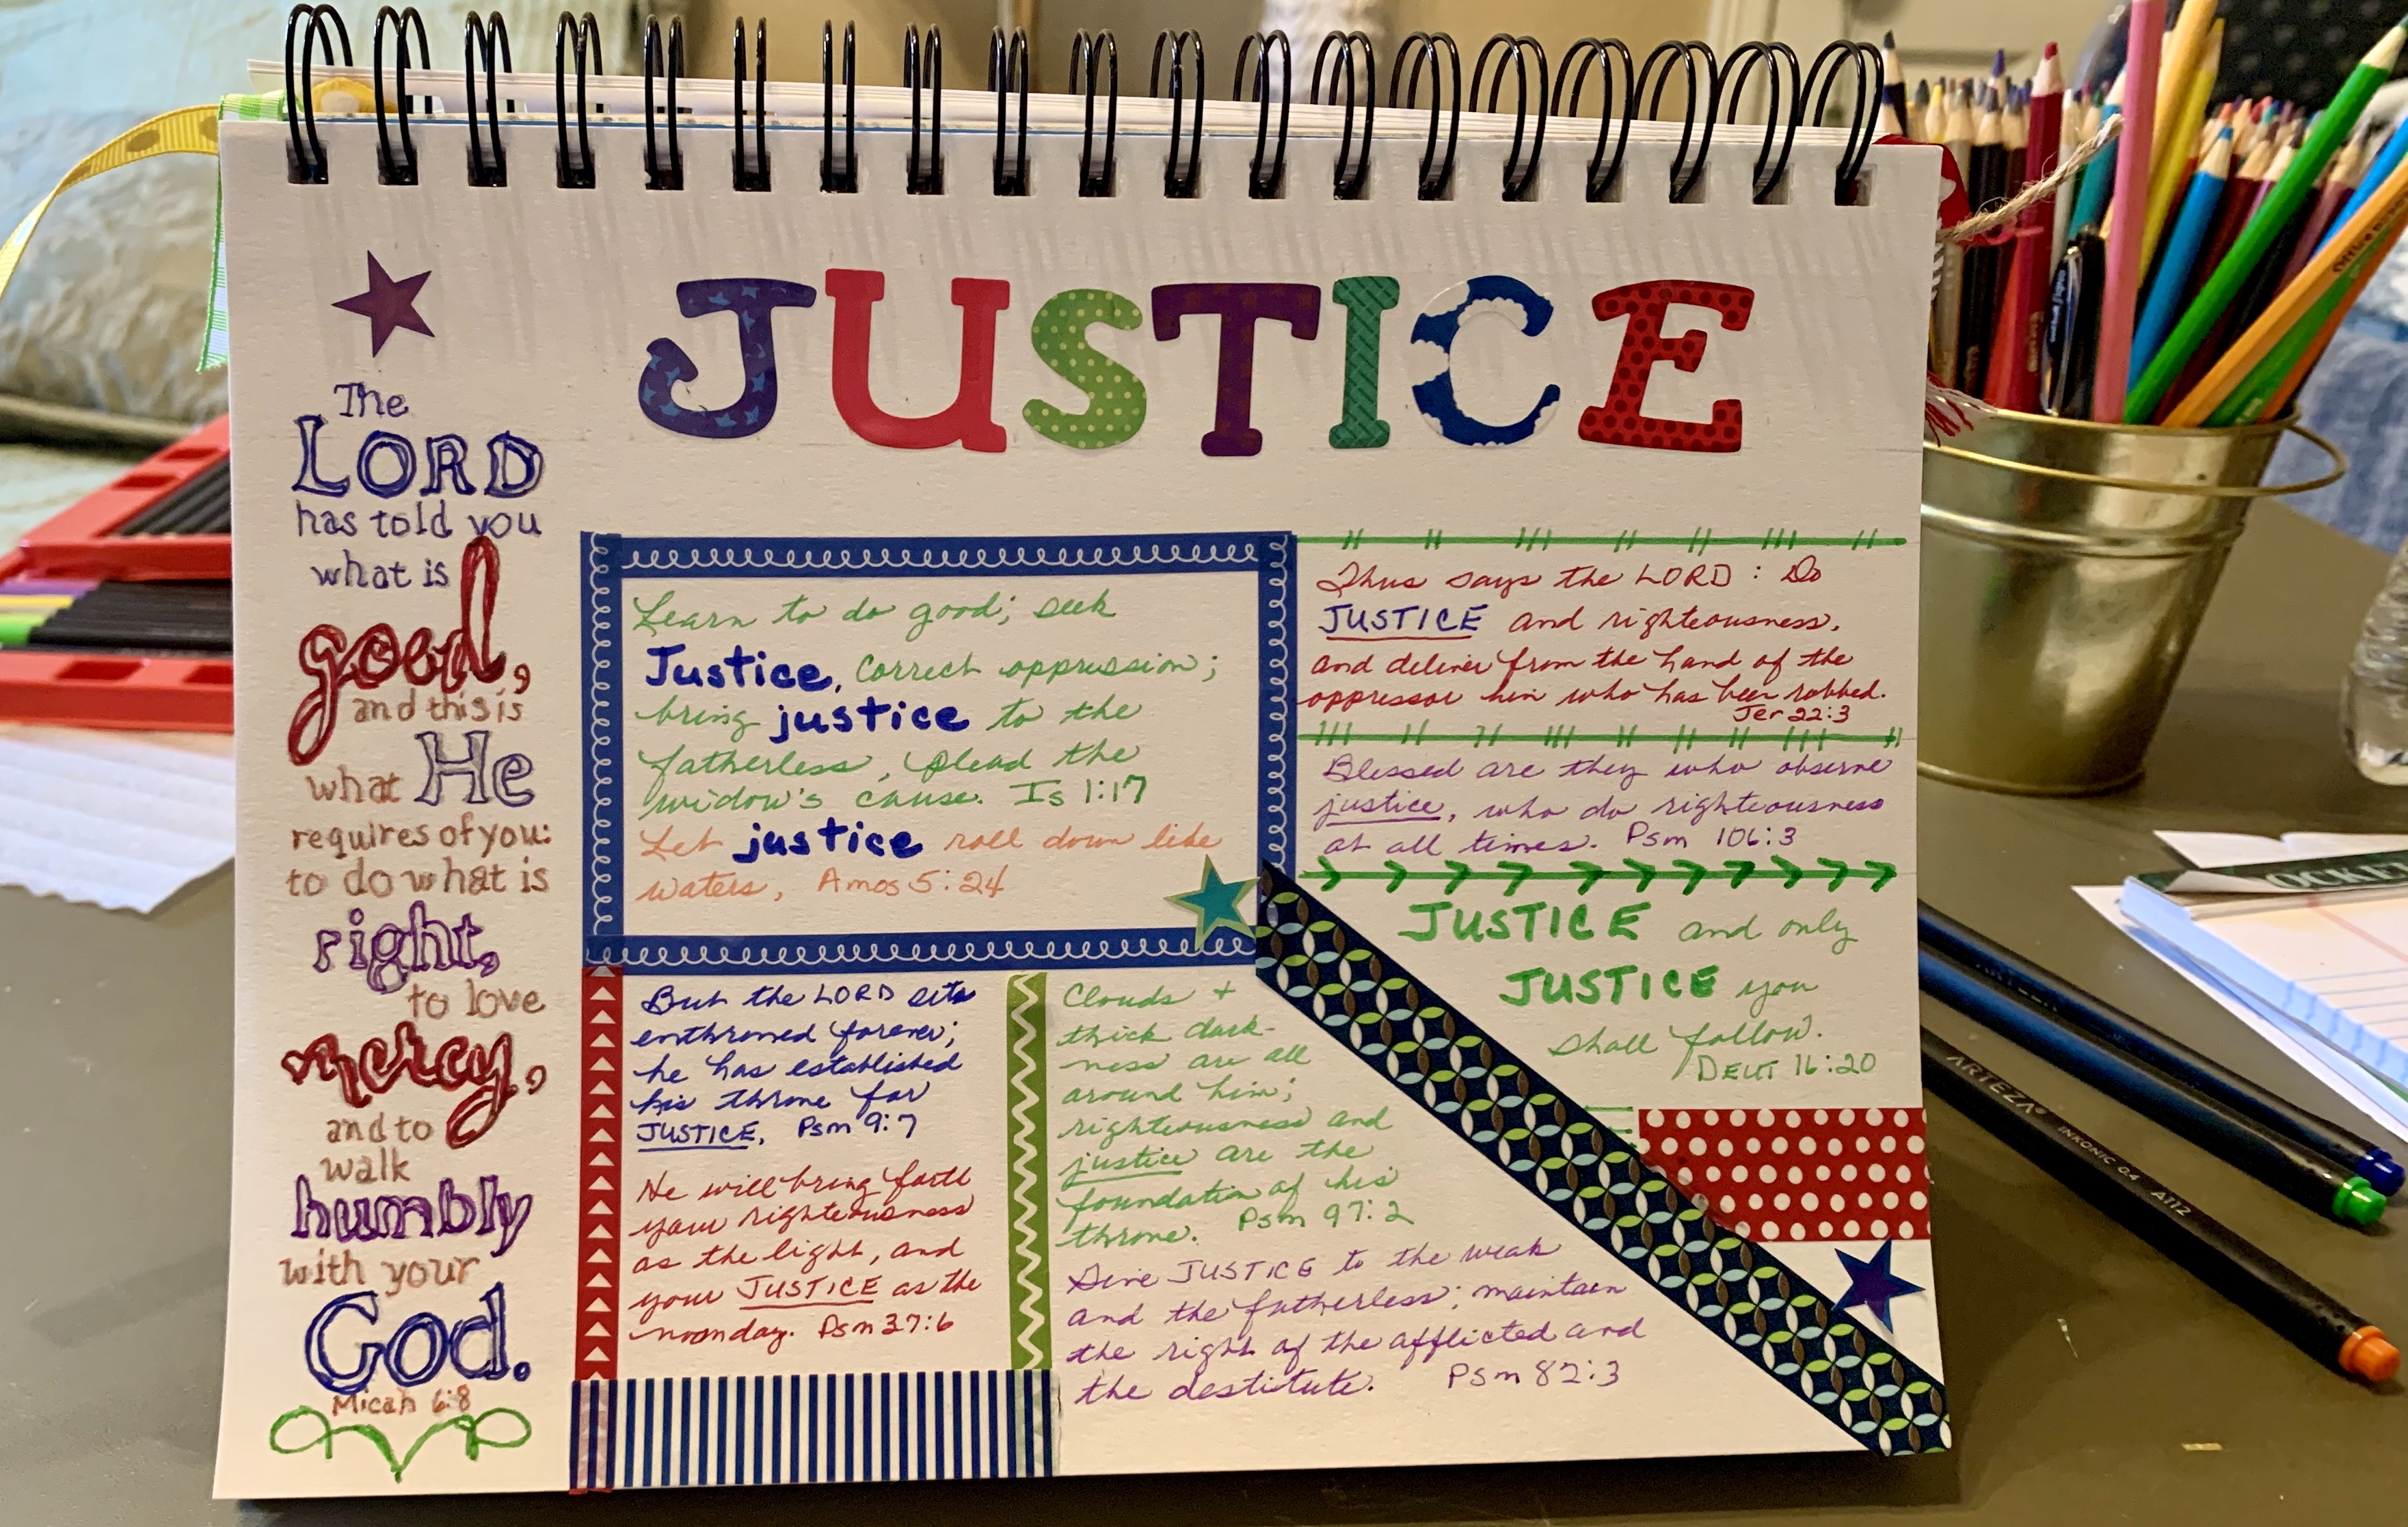 JUSTICE
The
LORD
has told you
what is
good,
and this is
what He
requires of you:
to do what is
right,
to love
mercy,
and to
walk
humbly
with your
God.
Micah 6:8
Learn to do good; seek
Justice, correct oppression;
bring justice to the
fatherless, plead the
widow's cause. Is 1:17
Let justice roll down like
waters, Amos 5:24
Thus says the LORD: Do
JUSTICE and righteousness,
and deliver from the hand of the
oppressor him who has been robbed.
Jer 22:3
Blessed are they who observe
justice, who do righteousness
at all times. Psm 106:3
JUSTICE and only
JUSTICE you
shall follow.
DEUT 16:20
But the LORD sits
enthroned forever;
he has established
his throne for
JUSTICE. Psm 9:7
He will bring forth
your righteousness
as the light, and
your JUSTICE as the
noonday. Psm 37:6
Clouds +
thick dark-
ness are all
around him;
righteousness and
justice are the
foundation of his
throne. Psm 97:2
Give JUSTICE to the weak
and the fatherless; maintain
the right of the afflicted and
the destitute. Psm 82:3
OCKE
ARTEZA INKONIC 0.4 A112